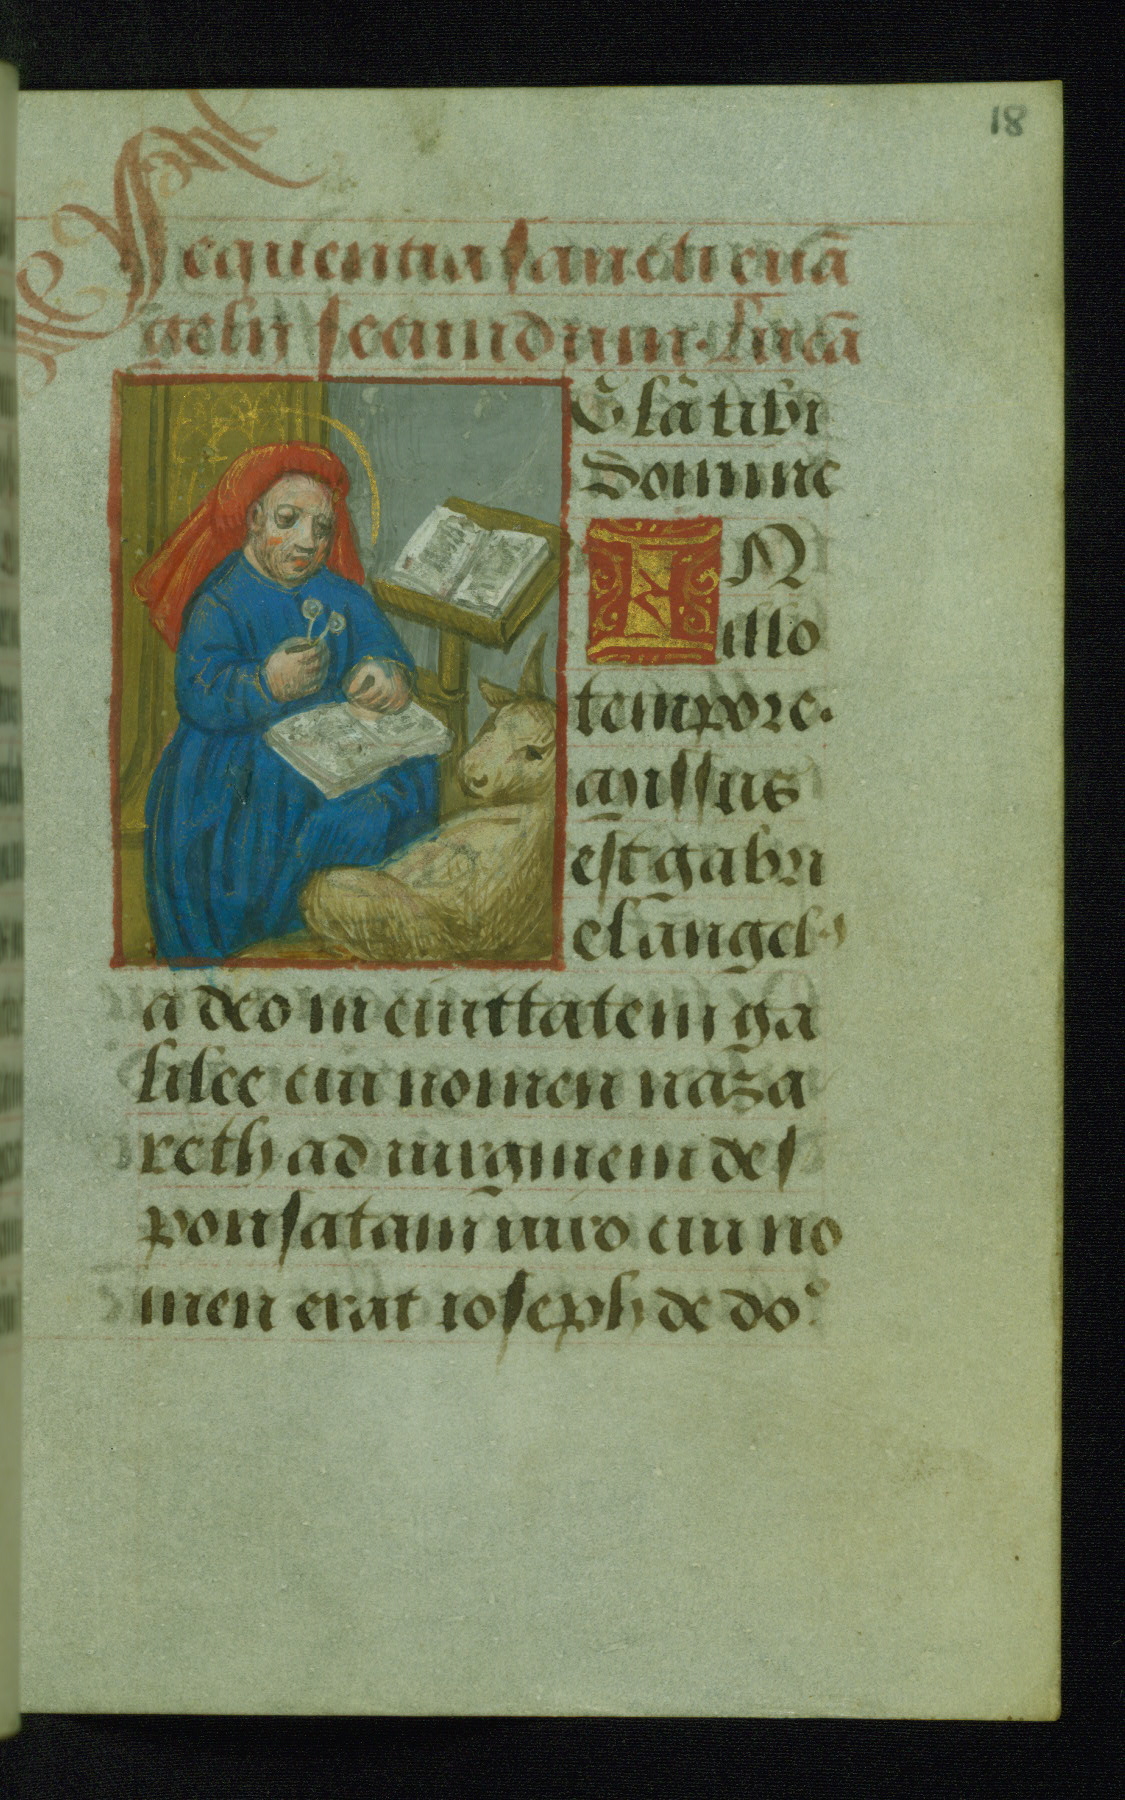 18
Sequentia sancti euā
gelii secundum · lucā
Glã tibi
Domine
IN
illo
tempore ·
missus
est gabri
el angel9
a deo in ciuitatem ga
lilee cui nomen naza
reth ad uirginem des
ponsatam uiro cui no
men erat ioseph de do